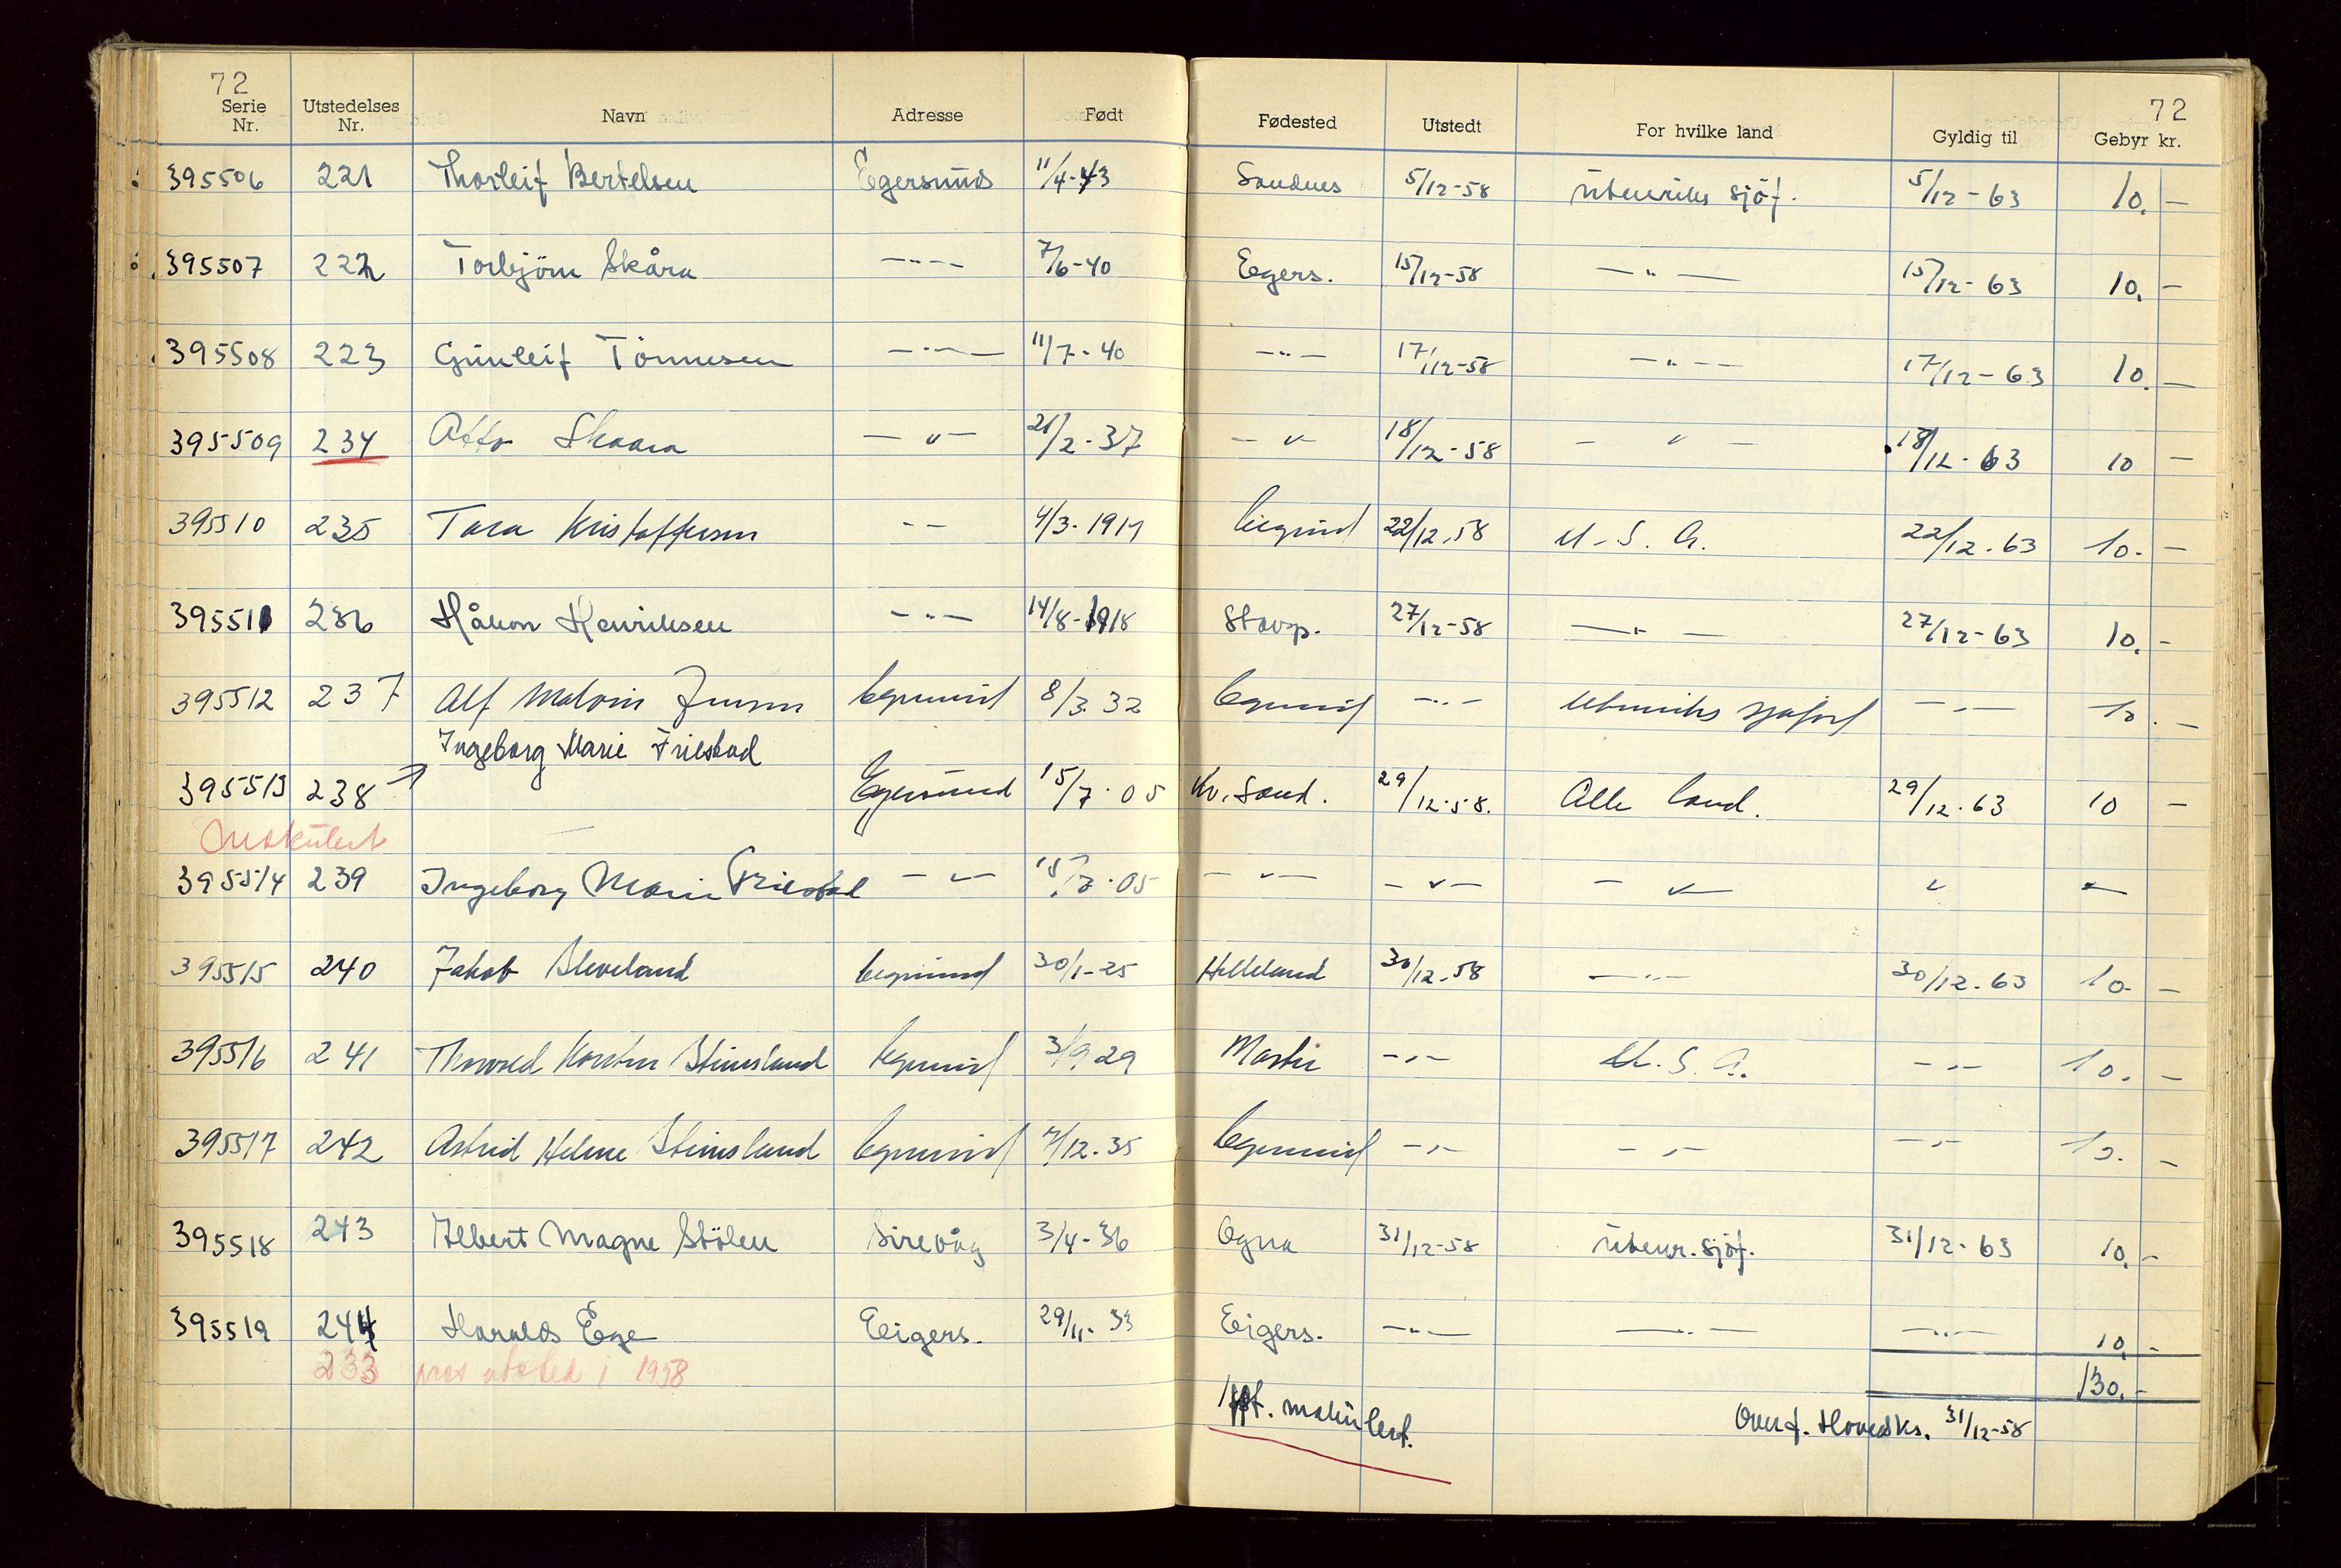 72 72
Serie Nr. Utstedelses Nr. Navn Adresse Født Fødested Utstedt For hvilke land Gyldig til Gebyr kr.
395506 221 Thorleif Bertelsen Egersund 11/4-43 Sandnes 5/12-58 utenriks sjöf. 5/12-63 10.-
395507 222 Torbjörn Skåra -"- 7/6-40 Egers. 15/12-58 -"- 15/12-63 10.-
395508 223 Gunleif Tönnesen -"- 11/7-40 -"- 17/12-58 -"- 17/12-63 10.-
395509 234 Otto Skaara -"- 21/2-37 -"- 18/12-58 -"- 18/12-63 10 -
395510 235 Tora Kristoffersen - - 4/3-1917 22/12.58 U.S.A. 22/12.63 10.-
395511 236 Håkon Henriksen -"- 14/8-1918 Stavg. 27/12-58 -"- 27/12-63 10.-
395512 237 Alf Malvin Jensen Egersund 8/3.32 Egersund -"- Utenriks sjøfart -"- 10.-
Ingeborg Marie Friestad
395513 238 Egersund 15/7.05 Kr. Sand. 29/12.58. Alle land. 29/12.63 10 -
Makulert
395514 239 Ingeborg Marie Friestad -"- 15/7.05 -"- -"- -"- " -
395515 240 Jakob Sleveland Egersund 30/1-25 Helleland 30/12.58 -"- 30/12.63 10.-
395516 241 Thorvald Karsten Stinesland Egersund 3/9.29 -"- U.S.A. -"- 10.-
395517 242 Astrid Helene Stinesland Egersund 7/12.35 Egersund -"- -"- -"- 10.-
395518 243 Albert Magne Stölen Sirevåg 3/4-36 Ogna 31/12-58 utenr. sjöf. 31/12-63 10.-
395519 244 Harald Ege Eigers. 29/11-33 Eigers. -"- -"- -"- 10.-
233 pass utsted i 1958
130.-
makulert. Overf. Hovedks. 31/12-58